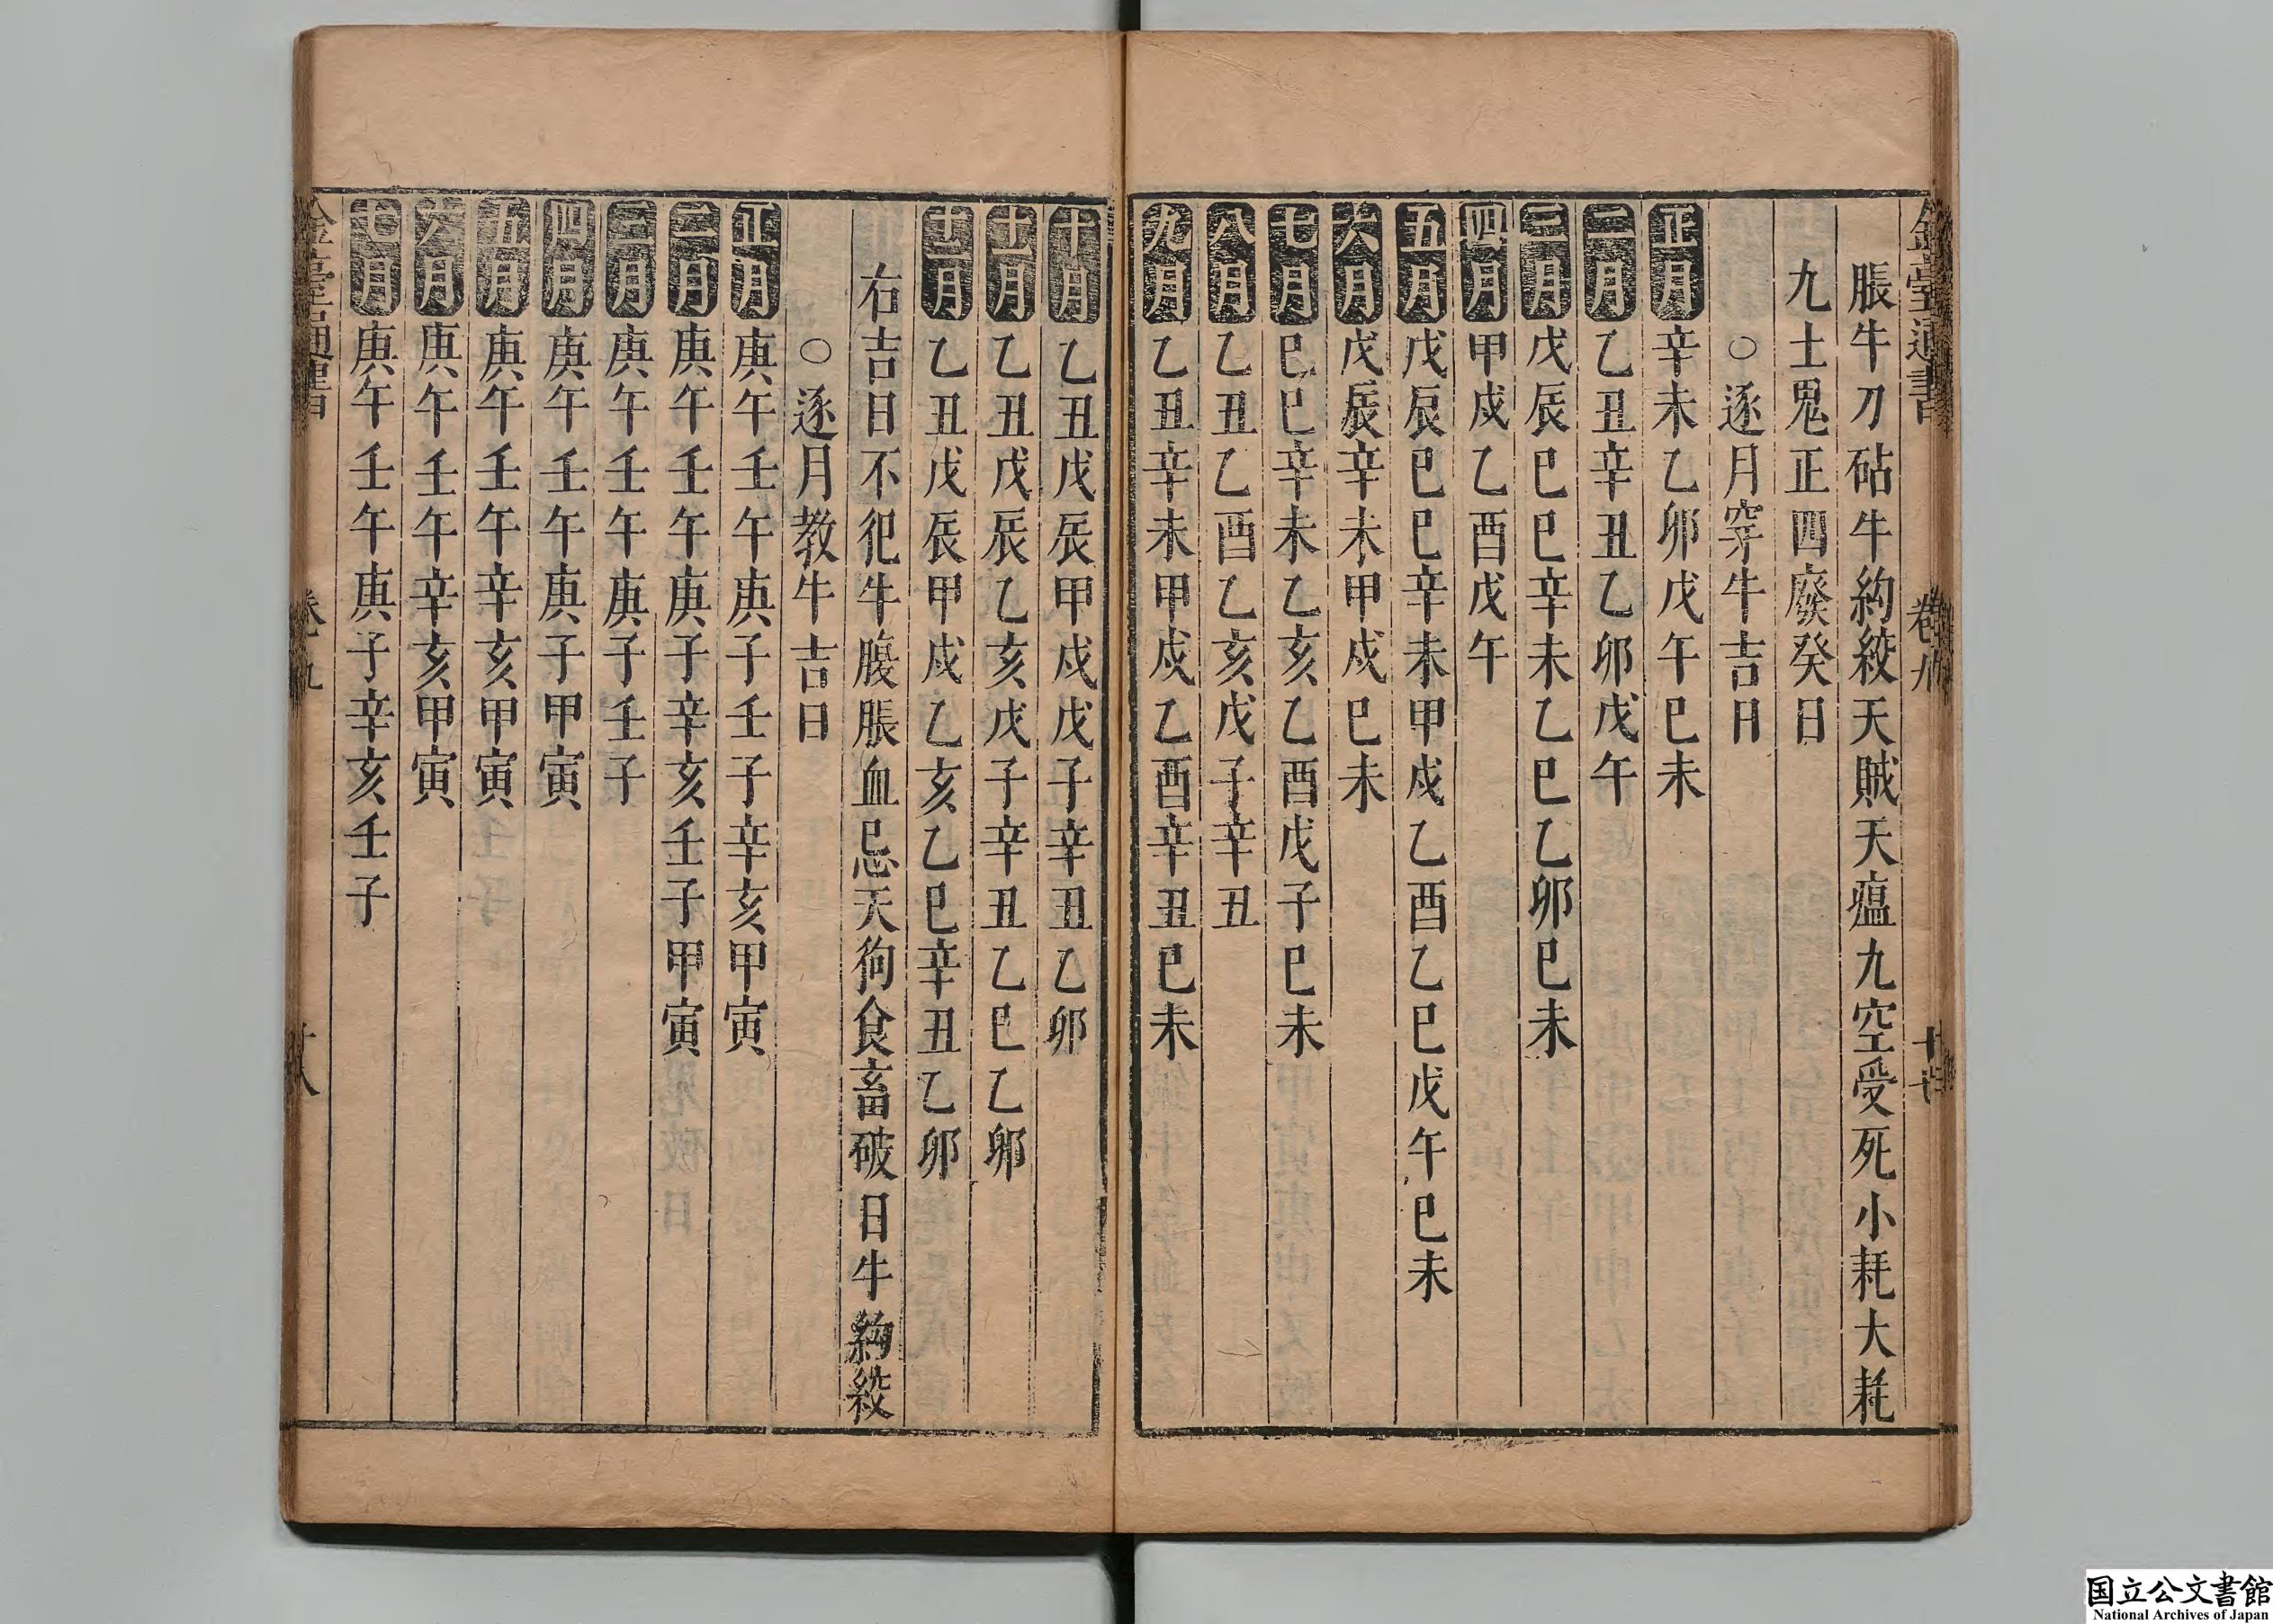 脹牛刀砧牛䋫絞天賊天瘟九空受死小耗大耗
九土鬼正四廢癸日
○逐月穿牛吉日
正月辛未乙卯戊午巳未
二月乙丑辛丑乙卯戊午
三月戊辰巳巳辛未乙巳乙卯巳未
四月甲戌乙酉戊午
五月戊辰巳巳辛未甲戌乙酉乙巳戊午巳未
六月戊辰辛未甲戌巳未
七月巳巳辛未乙亥乙酉戊子巳未
八月乙丑乙酉乙亥戊子辛丑
九月乙丑辛未甲戌乙酉辛丑巳未
十月乙丑戊辰甲戌戊子辛丑乙卯
十一月乙丑戊辰乙亥戊子辛丑乙巳乙卯
十二月乙丑戊辰甲戌乙亥乙巳辛丑乙卯
右吉日不犯牛腹脹血忌天狗食畜破日牛䋫絞
○逐月教牛吉日
正月庚午壬午庚子壬子辛亥甲寅
二月庚午壬午庚子辛亥壬子甲寅
三月庚午壬午庚子壬子
四月庚午壬午庚子甲寅
五月庚午壬午辛亥甲寅
六月庚午壬午辛亥甲寅
七月庚午壬午庚子辛亥壬子
国立公文書館
National Archives of Japan